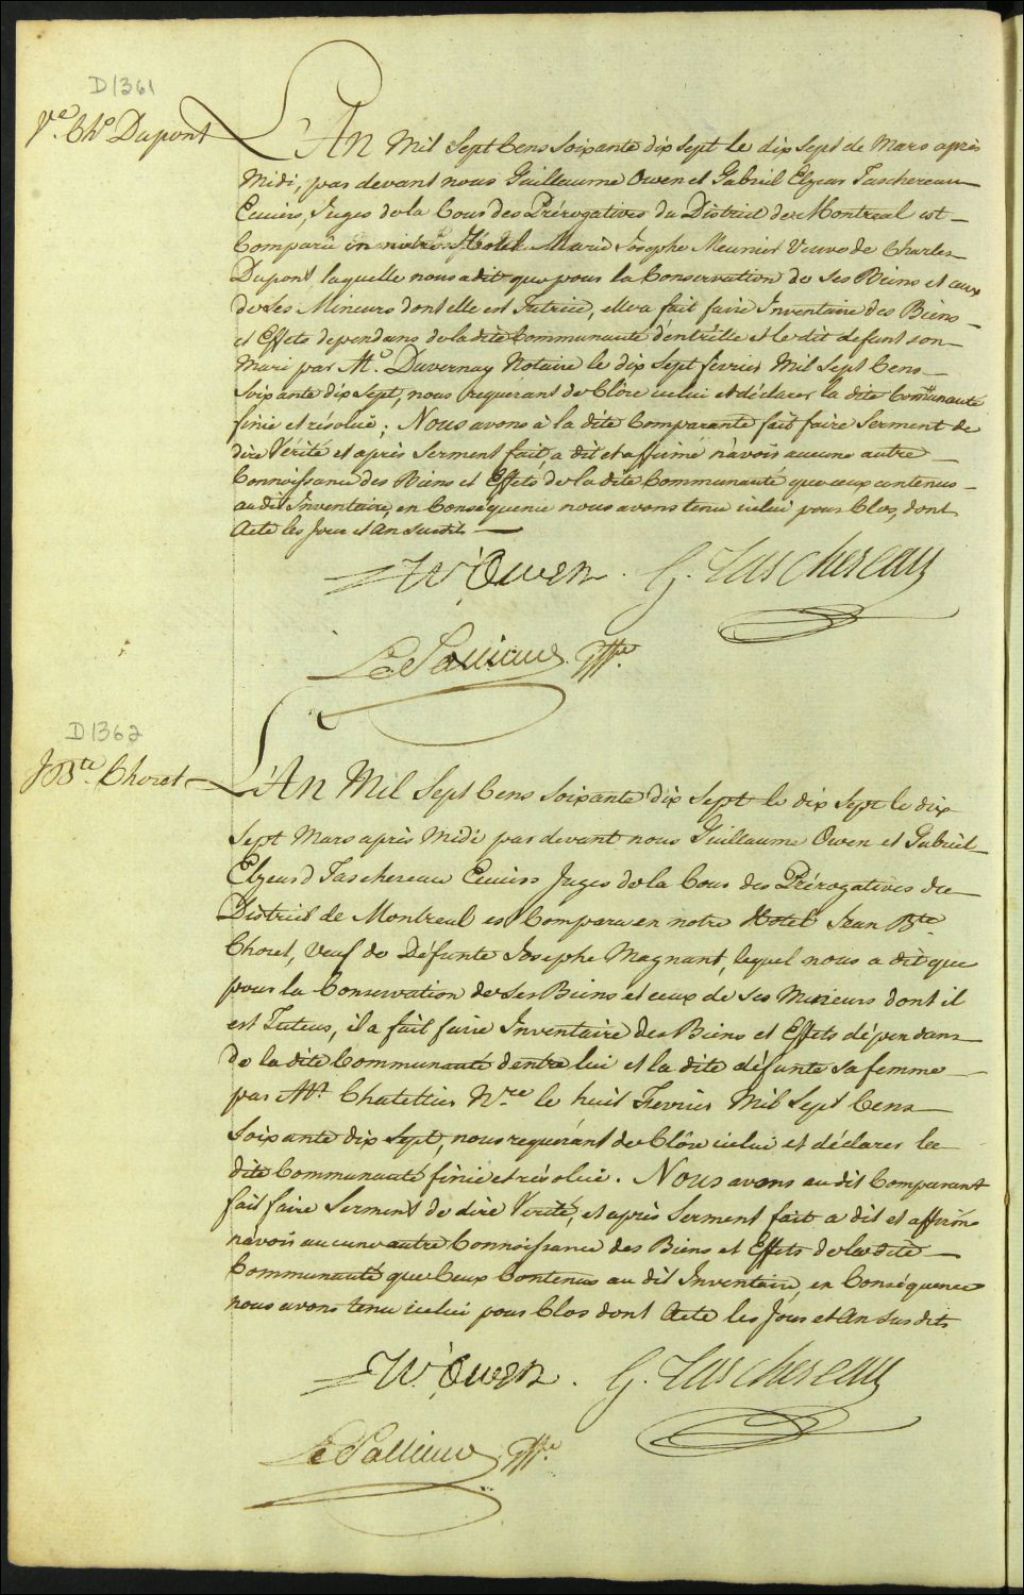 D1361
Ve. Chs Dupont
L'An Mil Sept Cens Soixante dix sept le dix sept de Mars après
Midi, par devant nous Guillaume Owen et Gabriel Elzear Taschereau
Ecuiers, Juges de la Cour des Prérogatives du District de Montreal est
Comparüe en nôtre Hôtel Marie Josephe Meunier Veuve de Charles
Dupont laquelle nous a dit que pour la Conservation de ses Biens et ceux
de ses Mineurs dont elle est Tutrice, elle a fait faire Inventaire des Biens
et Effets dependans de la dite Communauté d'entr'elle et le dit defunt son
Mari par Me. Duvernay Notaire le dix Sept fevrier Mil Sept Cens
Soixante dix Sept, nous requerant de Clôre icelui et déclarer la dite Communauté
finie et résolüe; Nous avons à la dite Comparante fait faire Serment de
dire Vérité et après Serment fait a dit et affirmé n'avoir aucune autre
Connoissance des Biens et Effets de la dite Communauté que ceux contenus
au dit Inventaire, en Conséquence nous avons tenu icelui pour Clos, dont
Acte les Jour et An susdits
W. Owen. G. Taschereau
Le Pallieur Gffr.
D1362
J Bte. Choret
L'An Mil Sept Cens Soixante dix Sept le dix Sept le dix
Sept Mars après Midi par devant nous Guillaume Owen et Gabriel
Elzeard Taschereau Ecuiers Juges de la Cour des Prérogatives du
District de Montreal est Comparu en notre Hotel Jean Bte.
Choret, Veuf de Défunte Josephe Magnant, lequel nous a dit que
pour la Conservation de ses Biens et ceux de ses Mineurs dont il
est Tuteur, il a fait faire Inventaire des Biens et Effets dépendans
de la dite Communauté d'entre lui et la dite défunte sa femme
par Me. Chatellier Nre. le huit Fevrier Mil Sept Cens
Soixante dix Sept, nous requérant de Clôre icelui et déclarer la
dite Communauté finie et résolüe. Nous avons au dit Comparant
fait faire Serment de dire Verité, et après Serment fait a dit et affirmé
n'avoir aucune autre Connoissance des Biens et Effets de la dite
Communauté que Ceux Contenus au dit Inventaire, en Conséquence
nous avons tenu icelui pour Clos dont Acte les Jour et An susdits
W. Owen. G. Taschereau
Le Pallieur Gffr.